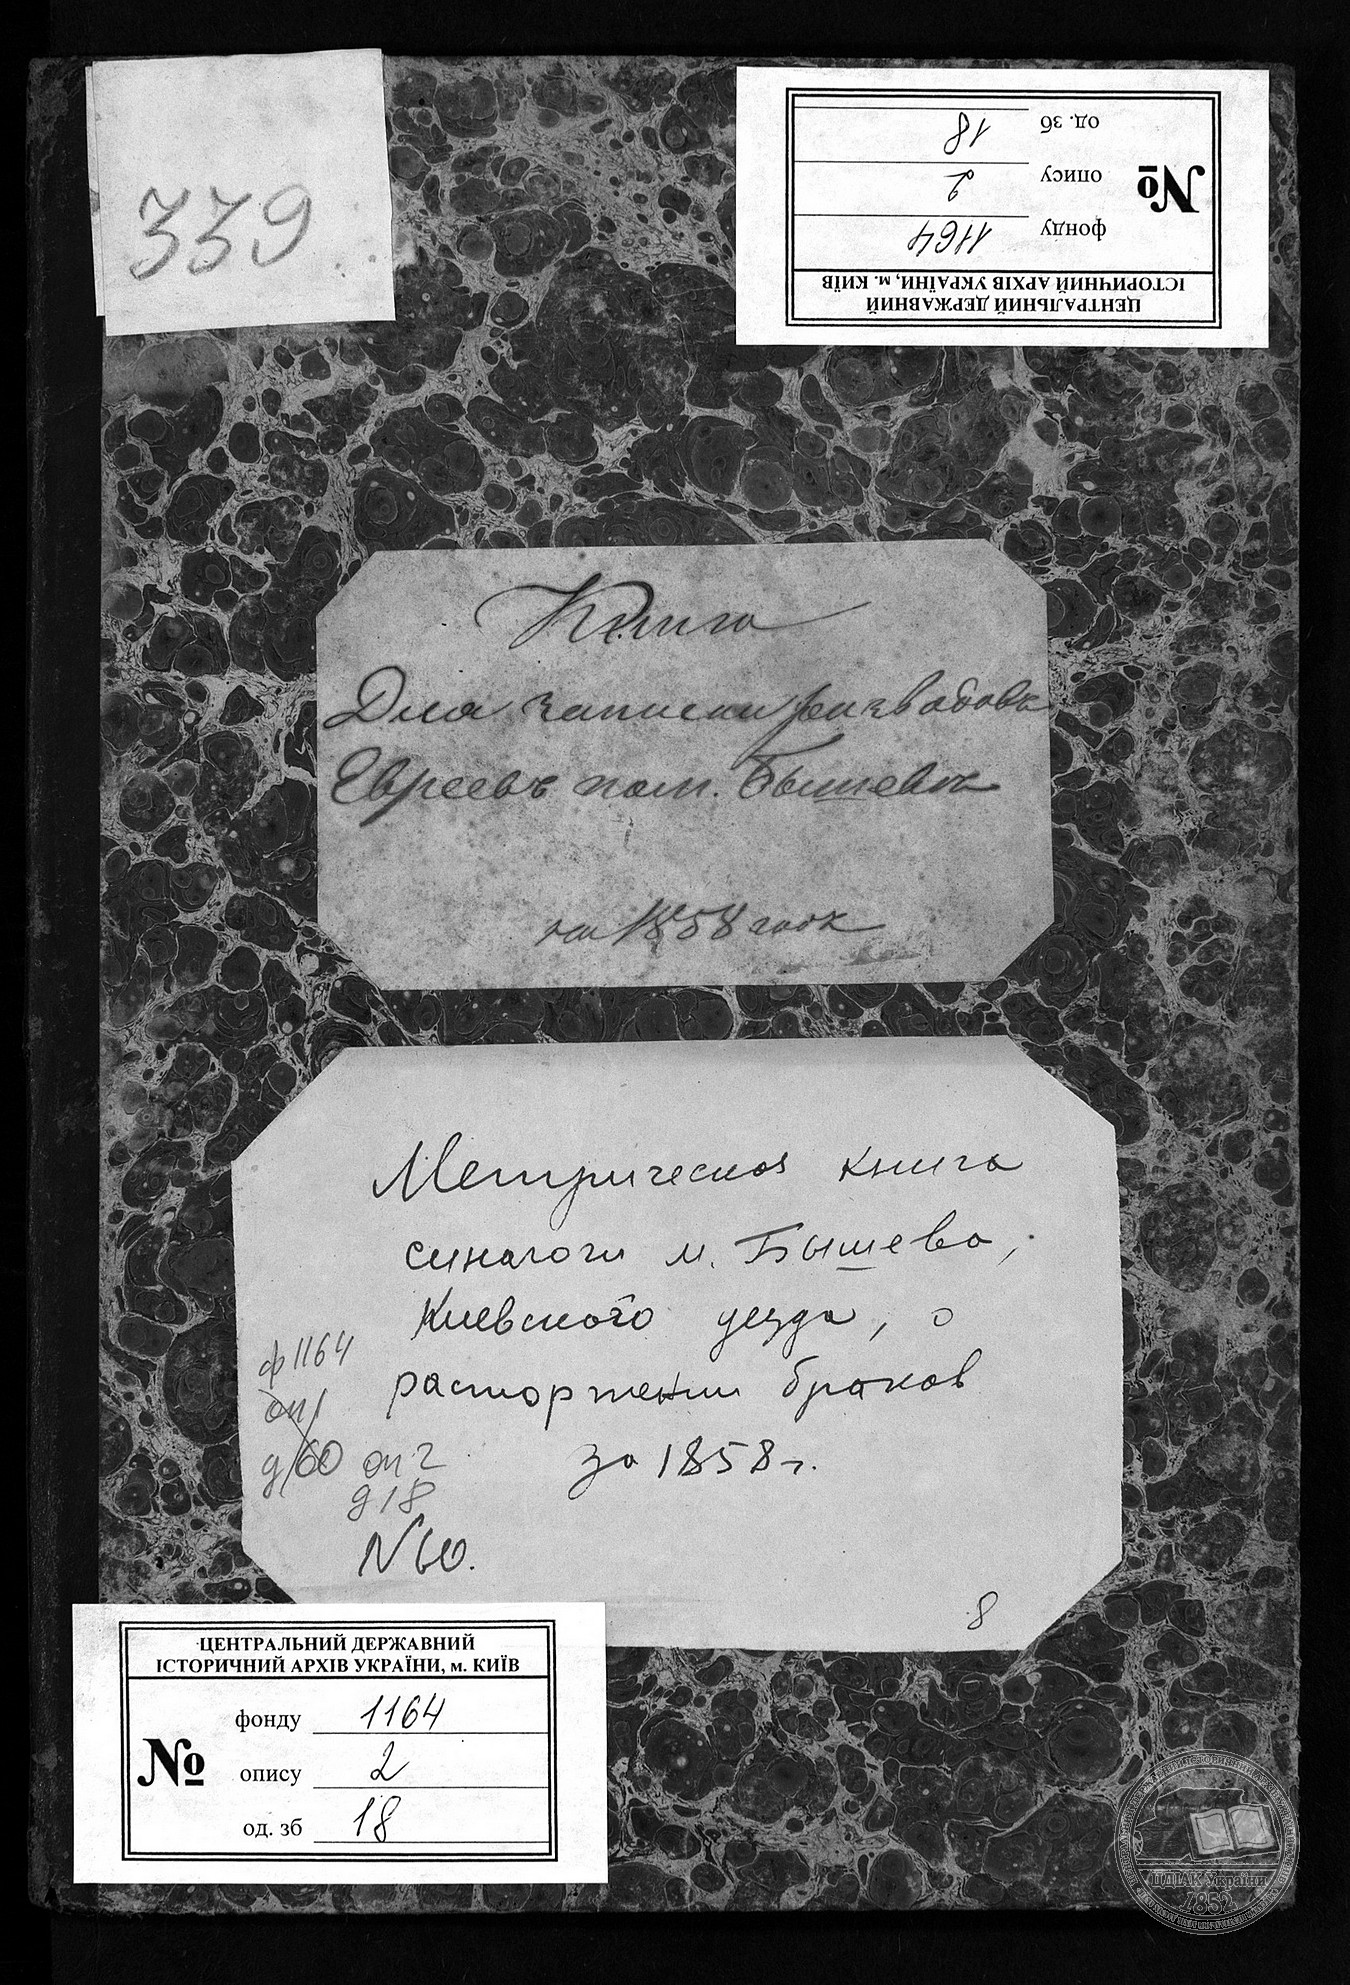 339
ЦЕНТРАЛЬНИЙ ДЕРЖАВНИЙ
ІСТОРИЧНИЙ АРХІВ УКРАЇНИ, м. КИЇВ
№
фонду 1164
опису 2
од. зб 18
Книга
Для записки разводовъ
Евреевъ мѣст. Бышевѣ
на 1858 годъ
Метрическая книга
синагоги м. Бышева,
Киевского уезда, о
расторжении браков
за 1858 г.
ф 1164
оп 1
д 60 оп 2
д 18
N 60.
8
ЦЕНТРАЛЬНИЙ ДЕРЖАВНИЙ
ІСТОРИЧНИЙ АРХІВ УКРАЇНИ, м. КИЇВ
№
фонду 1164
опису 2
од. зб 18
ЦДІАК України
1852